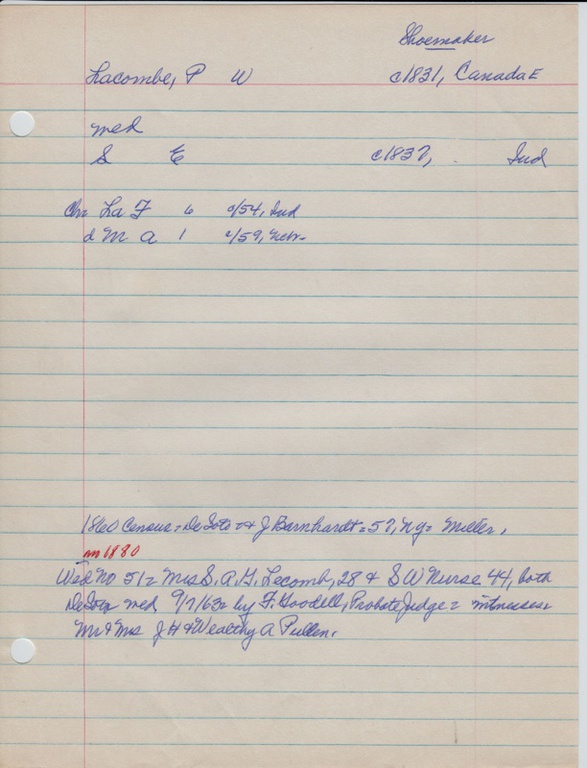 Shoemaker
Lacombe, P W c1831, Canada E
med
S E c1837, Ind
Ch= La F 6 c/54, Ind
d M A 1 c/59, Neb-
1860 Census = DeSoto = + J Barnhardt = 57, NY = Miller,
no 1880
Wed No 51 = Mrs S. A. G. Lecomb, 28 & S W Nurse 44, both
DeSoto med 9/7/63 = by F. Goodell, Probate Judge = witnesses =
Mr & Mrs J H & Wealthy A Pullen.